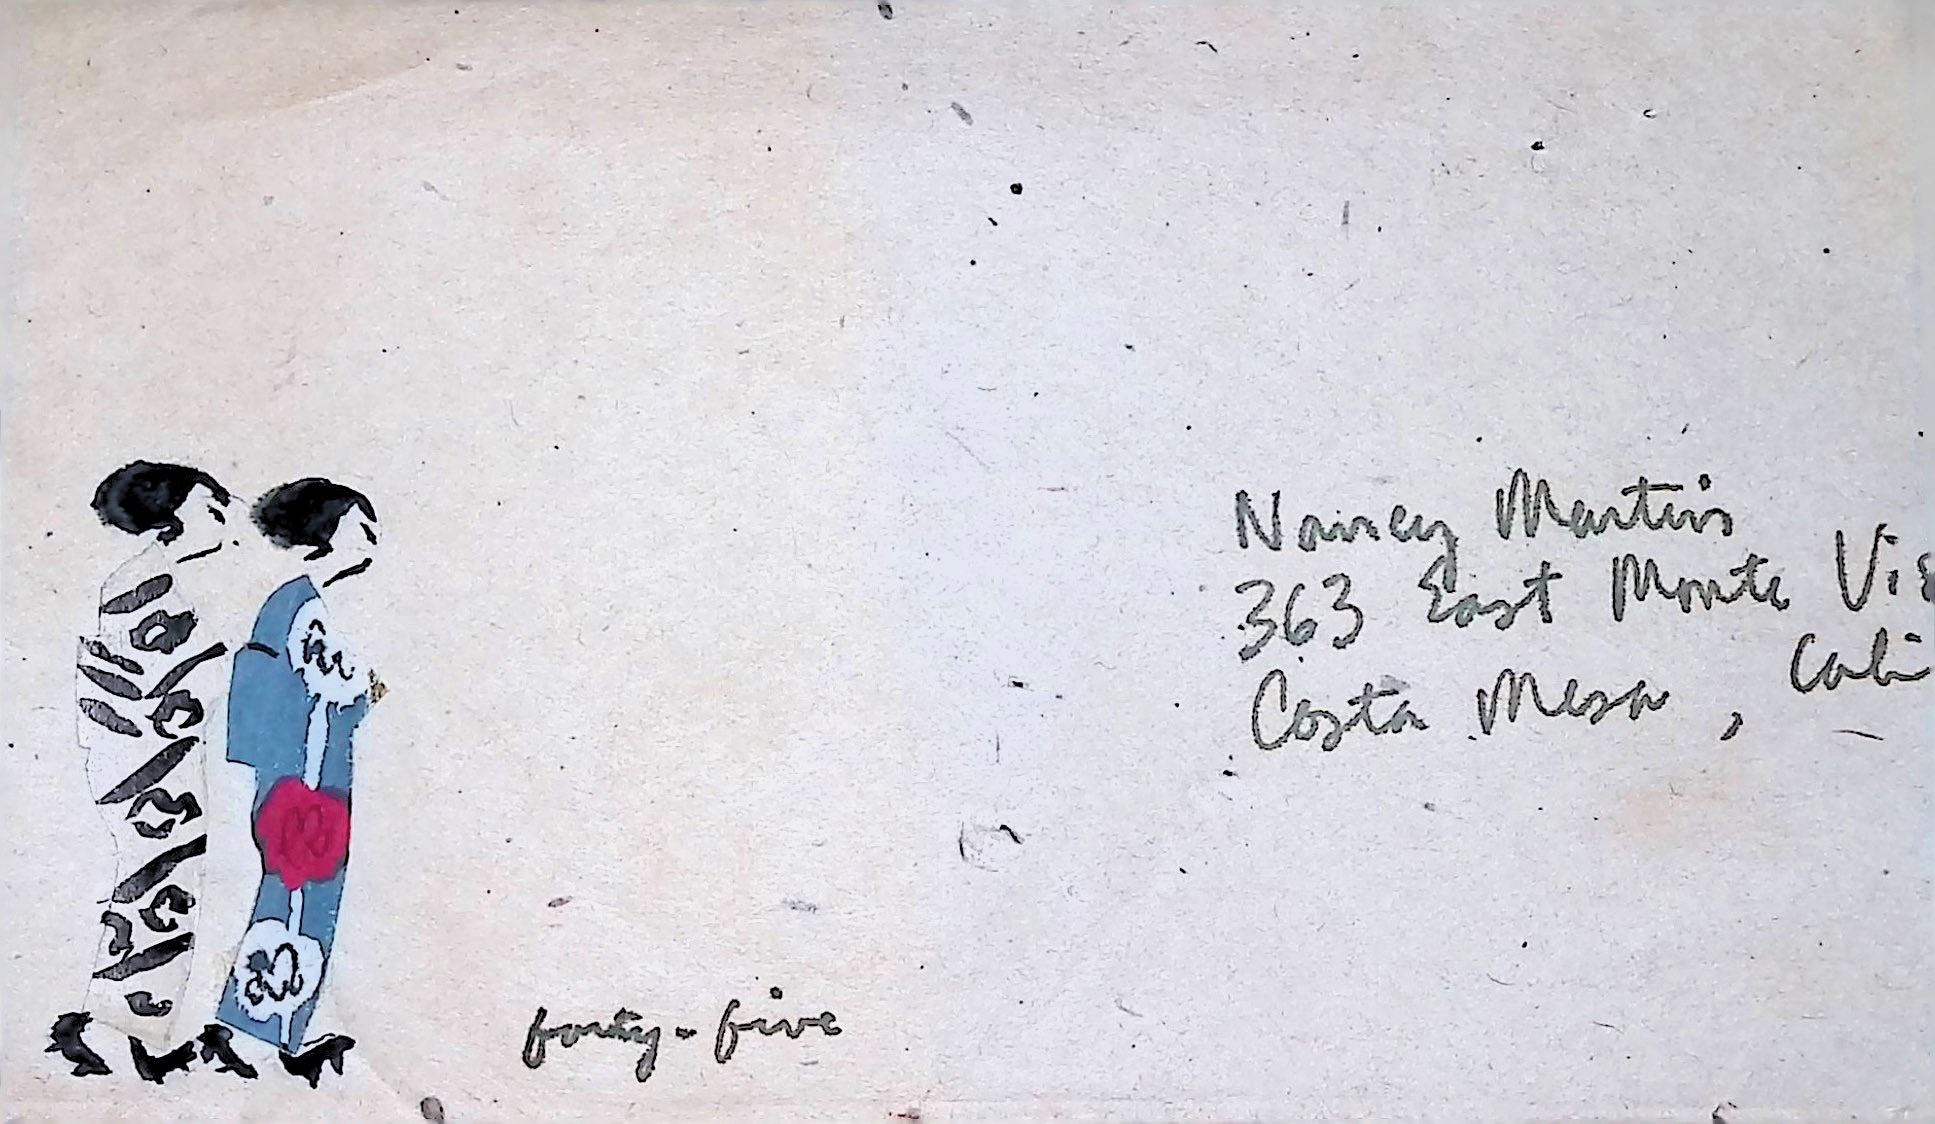 Nancy Martin
363 East Monte Vi
Costa Mesa, Cali
forty-five